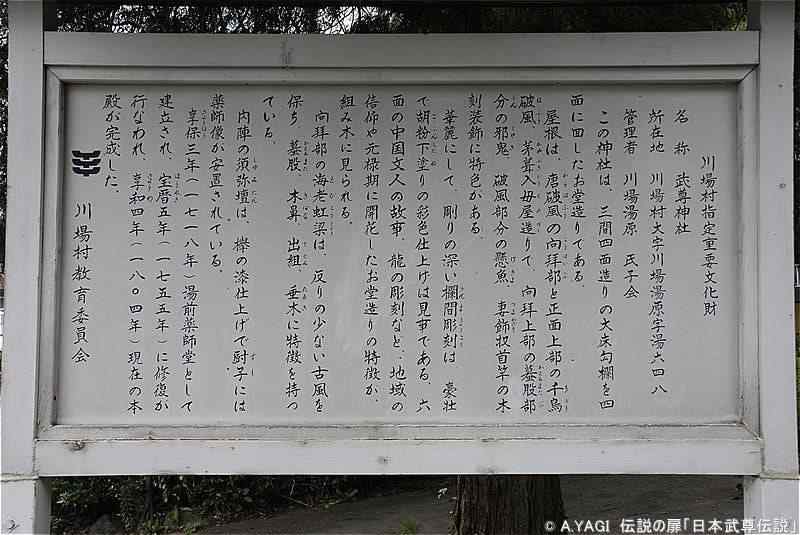 川場村指定重要文化財
名　称　武尊神社
所在地　川場村大字川場湯原字湯六四八
管理者　川場湯原　氏子会
この神社は、三間四面造りの大床勾欄を四
面に回したお堂造りである。
屋根は、唐破風の向拝部と正面上部の千鳥
破風、茅葺入母屋造りで、向拝上部の蟇股部
分の邪鬼、破風部分の懸魚、妻飾扠首竿の木
刻装飾に特色がある。
華麗にして、剛りの深い欄間彫刻は、豪壮
で胡粉下塗りの彩色仕上げは見事である。六
面の中国文人の故事、龍の彫刻など、地域の
信仰や元禄期に開花したお堂造りの特徴が、
組み木に見られる。
向拝部の海老虹梁は、反りの少ない古風を
保ち、蟇股、木鼻、出組、垂木に特徴を持っ
ている。
内陣の須弥壇は、欅の漆仕上げで厨子には
薬師像が安置されている。
享保三年（一七一八年）湯前薬師堂として
建立され、宝暦五年（一七五五年）に修復が
行なわれ、享和四年（一八〇四年）現在の本
殿が完成した。
川場村教育委員会
© A.YAGI 伝説の扉「日本武尊伝説」